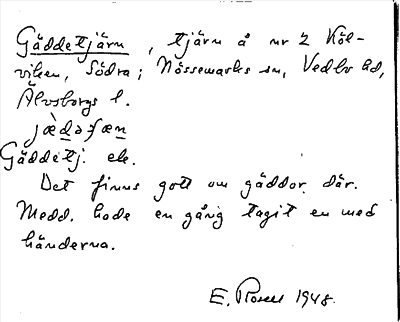 Gäddetjärn, tjärn å nr 2 Köl-
viken, Södra; Nössemarks sn, Vedbo hd,
Älvsborgs l.
jæ̀dəɟæn
Gäddetj. ek.
Det finns gott om gäddor där.
Medd. hade en gång tagit en med
händerna.
E. Rosell 1948.